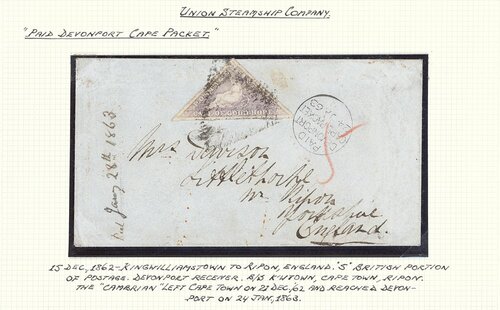 UNION STEAMSHIP COMPANY.
"PAID DEVONPORT CAPE PACKET."
Mrs Davison
Littlethorpe
nr Ripon
Yorkshire
England.
Jany 28th 1863
PAID
DEVONPORT
5
15 DEC, 1862 - KINGWILLIAMSTOWN TO RIPON, ENGLAND. '5' BRITISH PORTION
OF POSTAGE. DEVONPORT RECEIVER, B/S K'WTOWN, CAPE TOWN, RIPON.
THE "CAMBRIAN" LEFT CAPE TOWN ON 21 DEC, '62 AND REACHED DEVON-
PORT ON 24 JAN, 1863.